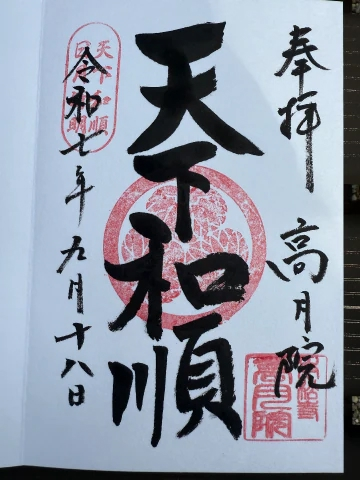 奉拝 高月院
天下和順
令和七年九月十八日
天下和順
高月院